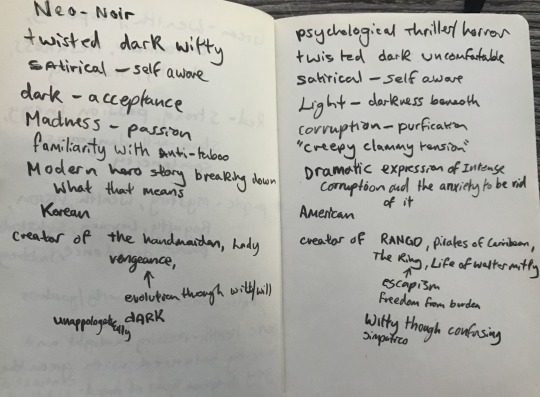 Neo-Noir
twisted dark witty
satirical - self aware
dark - acceptance
Madness - passion
familiarity with anti-taboo
Modern hero story breaking down
what that means
Korean
creator of the handmaiden, Lady
vengeance,
evolution through wit/will
unappologetically DARK
psychological thriller/horror
twisted dark uncomfortable
satirical - self aware
Light - darkness beneath
corruption - purfication
"creepy clammy tension"
Dramatic expression of Intense
corruption and the anxiety to be rid
of it
American
creator of RANGO, pirates of Caribean,
The Ring, Life of Walter mitty
escapism
Freedom from burden
Witty though confusing
simpatico